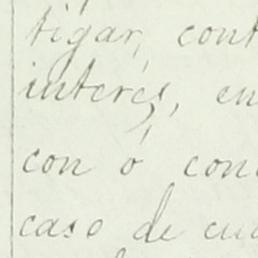 tigar, cont
interés, en
con ó con
caso de cu